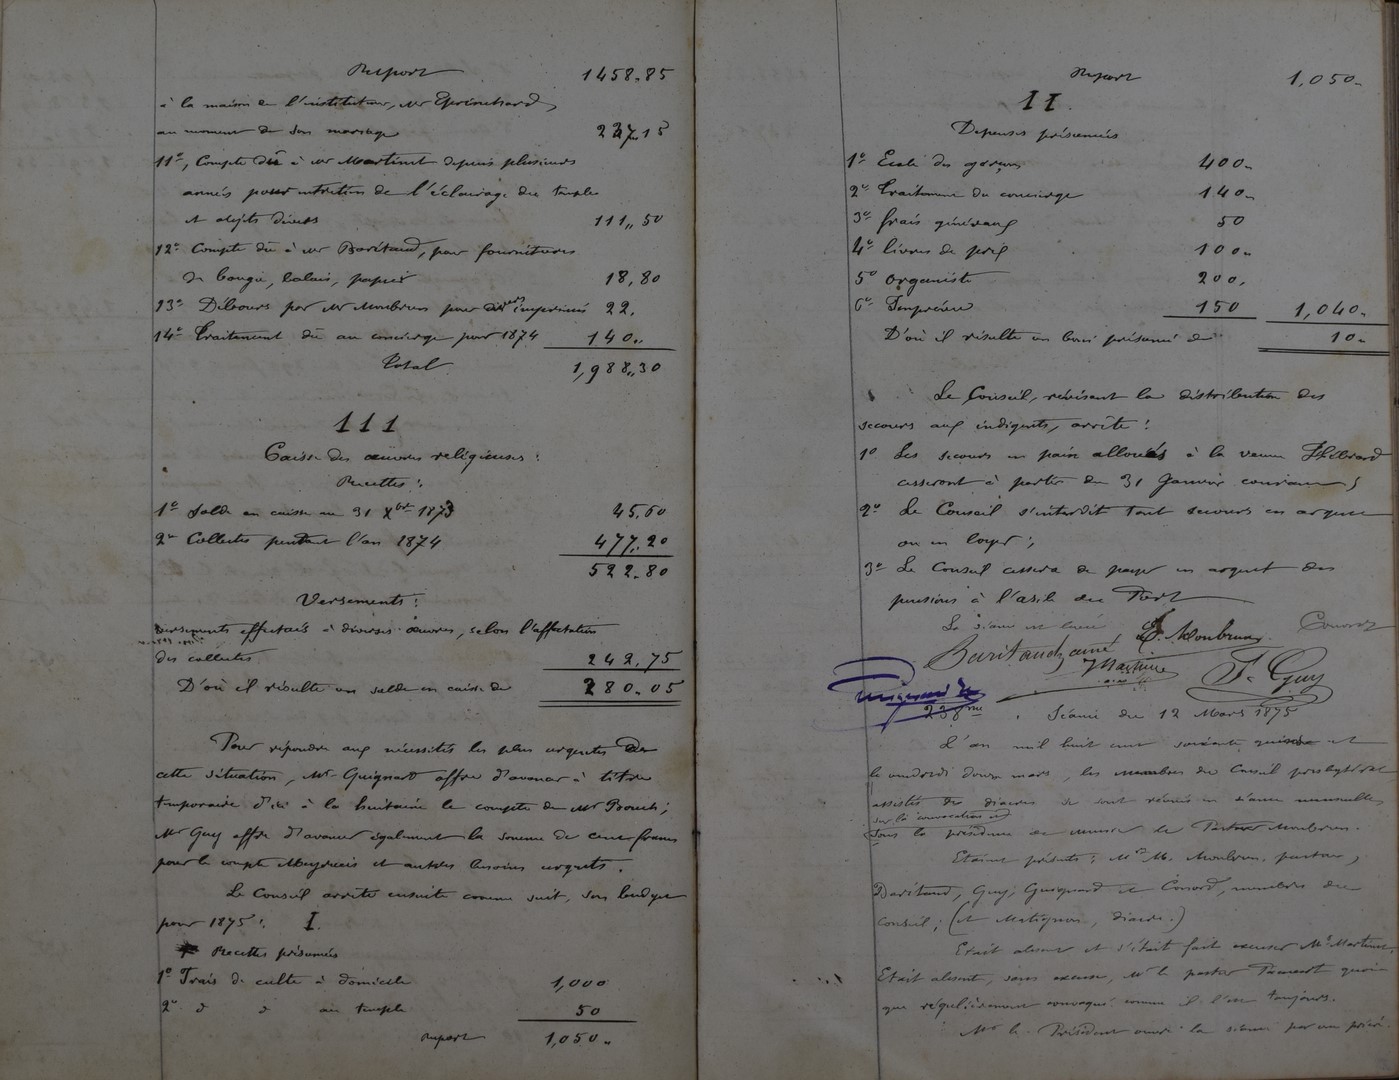 Report 1458.85
à la maison de l'instituteur, Mr
au moment de son mariage 237.15
11°, Compte dû à Mr Martinet depuis plusieurs
années pour entretien de l'éclairage du temple
et objets divers 111,,50
12° Compte dû à Mr Baritaud, pour fournitures
de bougie, balais, papier 18,80
13° Débours par Mr Monbrun pour divers imprimés 22.
14° Traitement dû au concierge pour 1874 140,,
Total 1,988,,30
III
Caisse des œuvres religieuses:
Recettes:
1° Solde en caisse au 31 Xbre 1873 45,60
2° Collectes pendant l'an 1874 477,20
522.80
Versements:
versements effectués à diverses œuvres, selon l'affectation
des collectes 242,75
D'où il résulte un solde en caisse de 280.05
Pour répondre aux nécessités les plus urgentes de
cette situation, Mr Guignard offre d'avancer à titre
temporaire d'ici à la huitaine le compte de Mr
Mr Guy offre d'avancer également la somme de cent francs
pour le compte Meyrueis et autres besoins urgents.
Le Conseil arrête ensuite comme suit, son budget
pour 1875: I.
Recettes présumées
1° Frais de culte à domicile 1,000
2° d d au temple 50
Report 1,050,,
Report 1,050,,
II.
Dépenses présumées
1° Ecole des garçons 400,,
2° Traitement du concierge 140,,
3° frais généraux 50
4° livres de prix 100,,
5° organiste 200,
6° Imprévu 150 1,040,,
D'où il résulte un boni présumé de 10,,
Le Conseil, révisant la distribution des
secours aux indigents, arrête:
1° Les secours en pain alloués à la veuve
cesseront à partir du 31 Janvier courant;
2° Le Conseil s'interdit tout secours en argent
ou en loyer;
3° Le Conseil cessera de payer en argent des
pensions à l'asile du Port
La séance est levée
Baritaud, aîné E. Monbrun Conord
Martinet F. Guy
238me. Séance du 12 Mars 1875
L'an mil huit cent soixante quinze et
le vendredi douze mars, les membres du Conseil presbytéral
assistés des diacres se sont réunis en séance mensuelle
sur la convocation et
sous la présidence de monsieur le Pasteur Monbrun.
Etaient présents: Mrs M. Monbrun, pasteur,
Baritaud, Guy, Guignard et Conord, membres du
conseil; (et Matignon, diacre.)
Etait absent et s'était fait excuser Mr Martinet,
Etait absent, sans excuse, Mr le pasteur quoi-
que régulièrement convoqué comme il l'est toujours.
Mr le Président ouvre la séance par une prière.